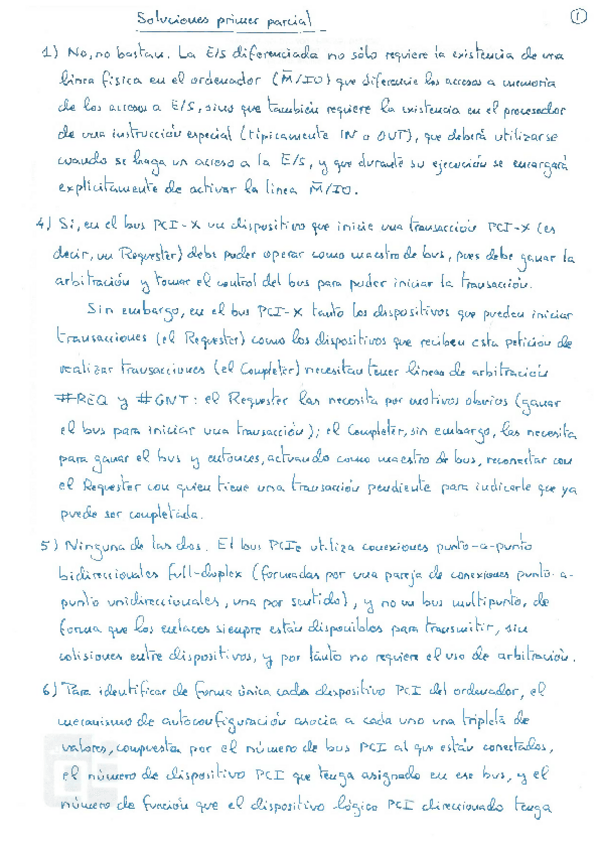 Soluciones primer parcial
1
1) No, no bastan. La E/S diferenciada no sólo requiere la existencia de una
línea física en el ordenador (M̅/IO) que diferencie los accesos a memoria
de los accesos a E/S, sino que también requiere la existencia en el procesador
de una instrucción especial (típicamente IN o OUT), que deberá utilizarse
cuando se haga un acceso a la E/S, y que durante su ejecución se encargará
explícitamente de activar la línea M̅/IO.
4) Sí, en el bus PCI-X un dispositivo que inicie una transacción PCI-X (es
decir, un Requester) debe poder operar como maestro de bus, pues debe ganar la
arbitración y tomar el control del bus para poder iniciar la transacción.
Sin embargo, en el bus PCI-X tanto los dispositivos que pueden iniciar
transacciones (el Requester) como los dispositivos que reciben esta petición de
realizar transacciones (el Completer) necesitan tener líneas de arbitración
#REQ y #GNT: el Requester las necesita por motivos obvios (ganar
el bus para iniciar una transacción); el Completer, sin embargo, las necesita
para ganar el bus y entonces, actuando como maestro de bus, reconectar con
el Requester con quien tiene una transacción pendiente para indicarle que ya
puede ser completada.
5) Ninguna de las dos. El bus PCIe utiliza conexiones punto-a-punto
bidireccionales full-duplex (formadas por una pareja de conexiones punto-a-
punto unidireccionales, una por sentido), y no un bus multipunto, de
forma que los enlaces siempre están disponibles para transmitir, sin
colisiones entre dispositivos, y por tanto no requiere el uso de arbitración.
6) Para identificar de forma única cada dispositivo PCI del ordenador, el
mecanismo de autoconfiguración asocia a cada uno una tripleta de
valores, compuesta por el número de bus PCI al que están conectados,
el número de dispositivo PCI que tenga asignado en ese bus, y el
número de función que el dispositivo lógico PCI direccionado tenga